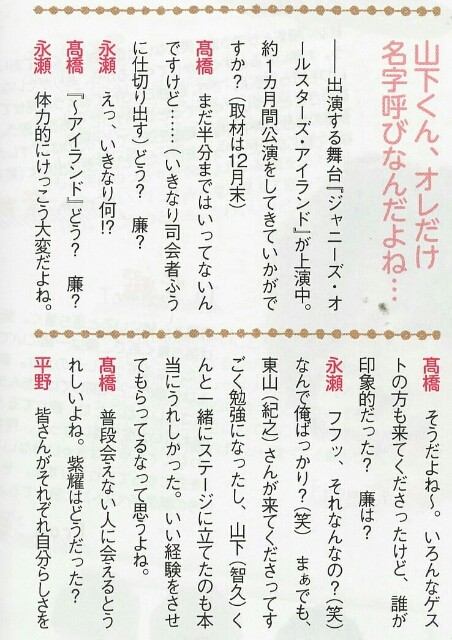 山下くん、オレだけ
名字呼びなんだよね…
――出演する舞台『ジャニーズ・オ
ールスターズ・アイランド』が上演中。
約1カ月間公演をしてきていかがで
すか?(取材は12月末)
髙橋 まだ半分まではいってないん
ですけど……(いきなり司会者ふう
に仕切り出す)どう? 廉?
永瀬 えっ、いきなり何!?
髙橋 『~アイランド』どう? 廉?
永瀬 体力的にけっこう大変だよね。
髙橋 そうだよね~。いろんなゲス
トの方も来てくださったけど、誰が
印象的だった? 廉は?
永瀬 フフッ、それなんなの?(笑)
なんで俺ばっかり?(笑) まぁでも、
東山(紀之)さんが来てくださってす
ごく勉強になったし、山下(智久)く
んと一緒にステージに立てたのも本
当にうれしかった。いい経験をさせ
てもらってるなって思うよね。
髙橋 普段会えない人に会えるとう
れしいよね。紫耀はどうだった?
平野 皆さんがそれぞれ自分らしさを